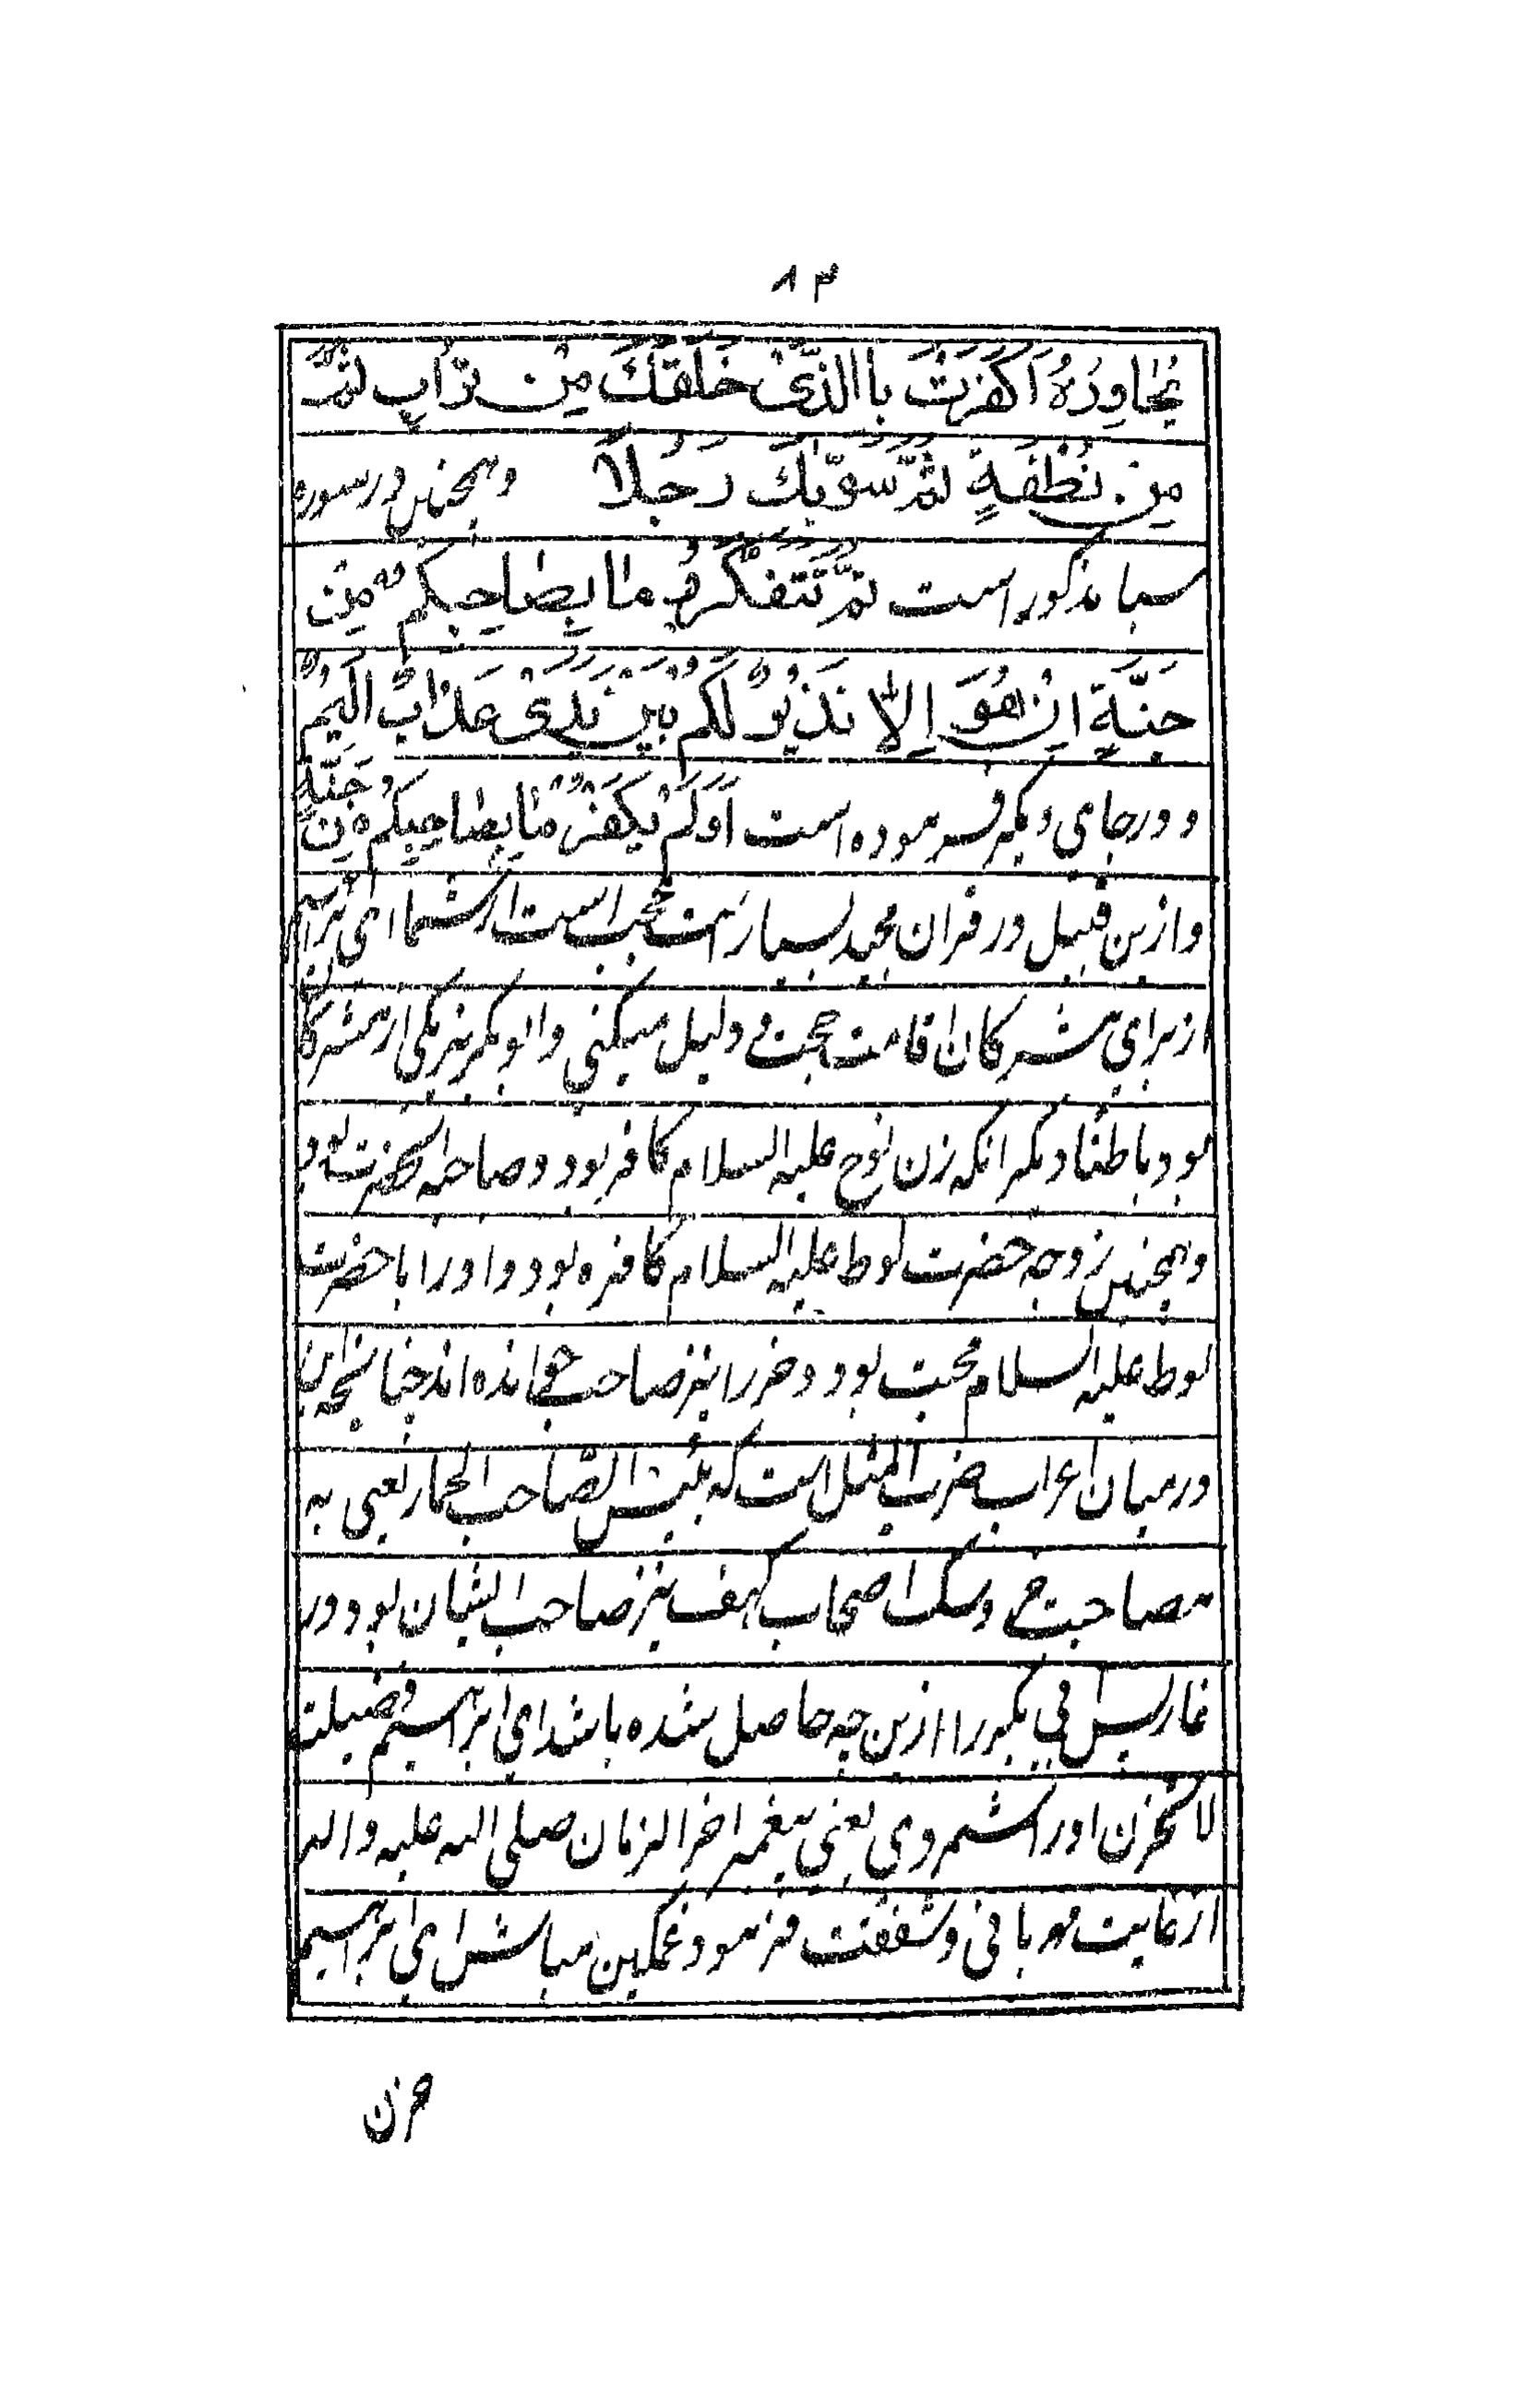 ۸۳
یُحٰاوِرُهُ اَکَفَرْتَ بِاالَّذیٖ خَلَقَکَ مِنْ تُرٰابٍ ثُمَّ
مِنْ نُطْفَةٍ ثُمَّ سَوّیٰكَ رَجُلاً و همچنین در سوره
سبا مذکور است ثُمَّ تَتَفَکَّرُو مٰا بِصٰاحِبِکُمْ مِنْ
جِنَّةٍ اِنْ هُوَ اِلّٰا نَذیٖرٌ لَکُمْ بَیْنَ یَدَیْ عَذٰابٌ اَلیٖمٌ
و در جای دیگر فرموده است اَوَلَمْ یَکْفَرُ مٰا بِصٰاحِبِکُمْ مِن جَنَّةٍ
و ازین قبیل در قران مجید بسیار است عجب است از شما ای ابراهیم
از برای مشرکان اقامت حجت و دلیل میکنی و ابو بکر نیز یکی از مشرکان
بود باطنًا دیگر انکه زن نوح علیه السلام کافر بود و صاحبه انحضرت بود
و همچنین زوجه حضرت لوط علیه السلام کافره بود و او را با حضرت
لوط علیه السلام صحبت بود و خر را نیز صاحب خوانده اند چنانچه این
در میان اعراب ضرب المثل است که بئس الصّاحب الحمار یعنی به
مصاحبت خر و سک اصحاب کهف نیز صاحب ایشان بود و در
غار پس ابی بکر را ازین چه حاصل شده باشد ای ابراهیم فضیلت
لا تحزن اورا شمردی یعنی پیغمبر اخر الزمان صلی الله علیه و اله
از غایت مهربانی و شفقت فرمود غمکین مباش ای ابراهیم
حزن